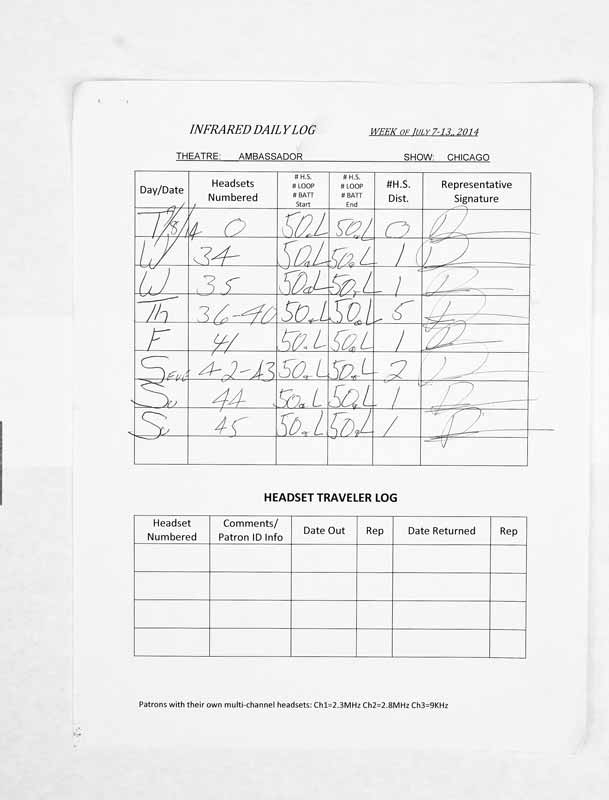 INFRARED DAILY LOG WEEK OF JULY 7-13, 2014
THEATRE: AMBASSADOR SHOW: CHICAGO
Day/Date Headsets Numbered # H.S. # LOOP # BATT Start # H.S. # LOOP # BATT End #H.S. Dist. Representative Signature
T 7/8/14 0 50.L 50.L 0
W 34 50.L 50.L 1
W 35 50.L 50.L 1
Th 36-40 50.L 50.L 5
F 41 50.L 50.L 1
S EVE 42-43 50.L 50.L 2
Su 44 50.L 50.L 1
Su 45 50.L 50.L 1
HEADSET TRAVELER LOG
Headset Numbered Comments/ Patron ID Info Date Out Rep Date Returned Rep
Patrons with their own multi-channel headsets: Ch1=2.3MHz Ch2=2.8MHz Ch3=9KHz